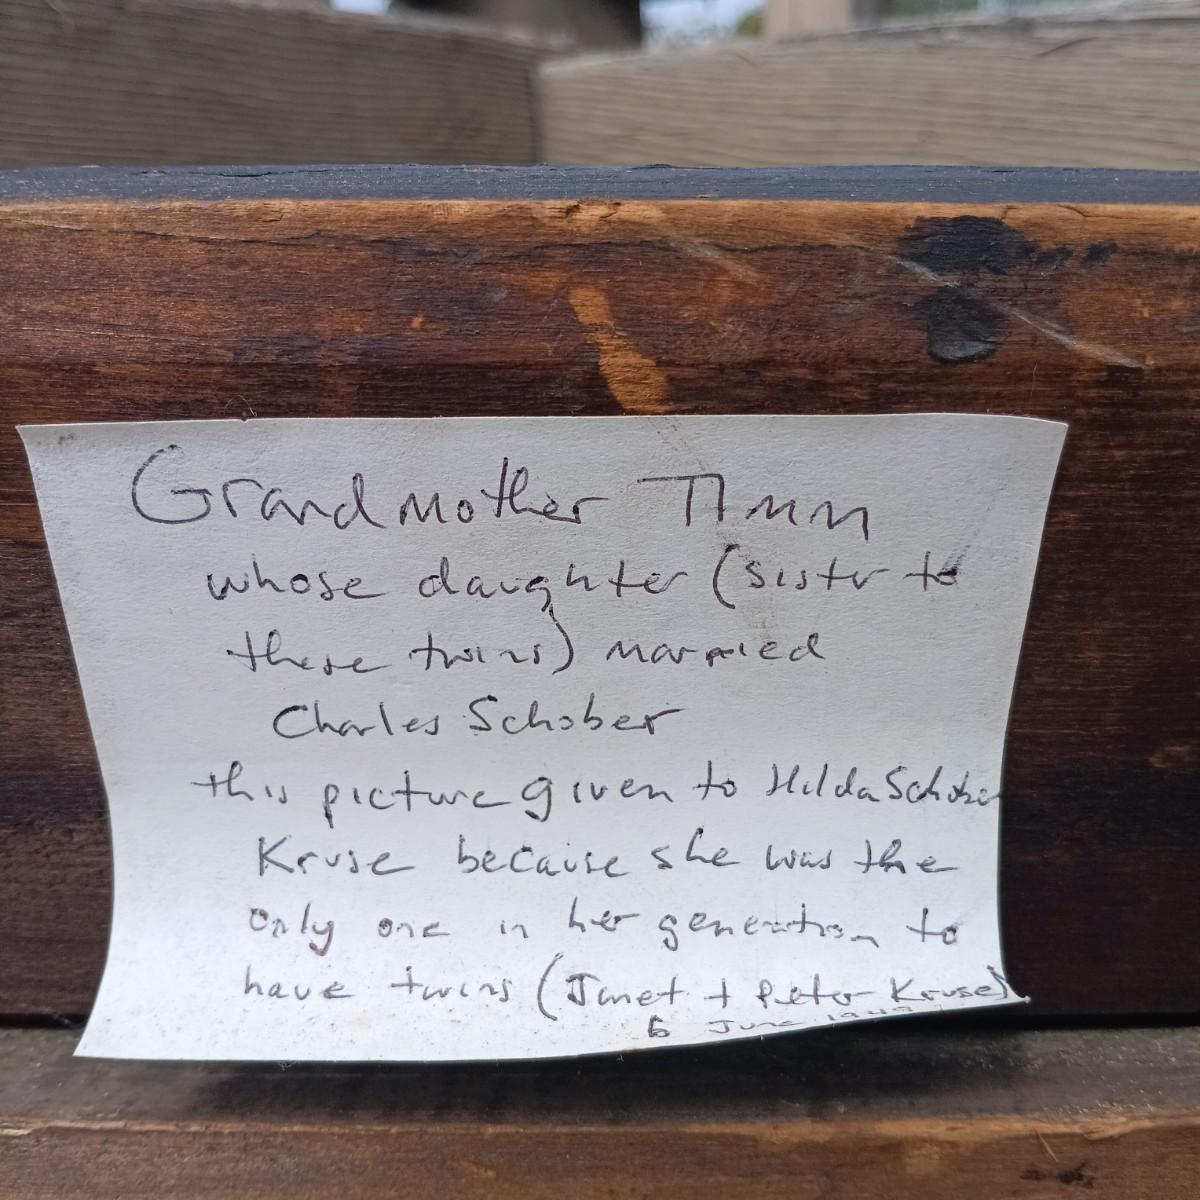 Grandmother TImm
whose daughter (sister to
these twins) married
Charles Schober
this picture given to Hilda Schober
Kruse because she was the
only one in her generation to
have twins (Janet + Peter Kruse)
6 June